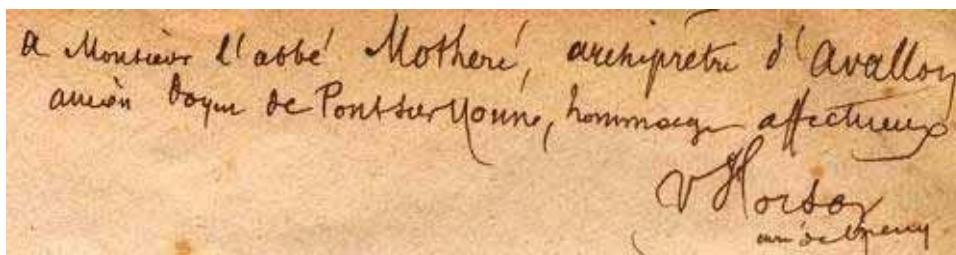 a Monsieur l'abbé Motheré, archiprêtre d'Avallon
ancien Doyen de Pont sur Yonne, hommage affectueux
V Horson
curé de